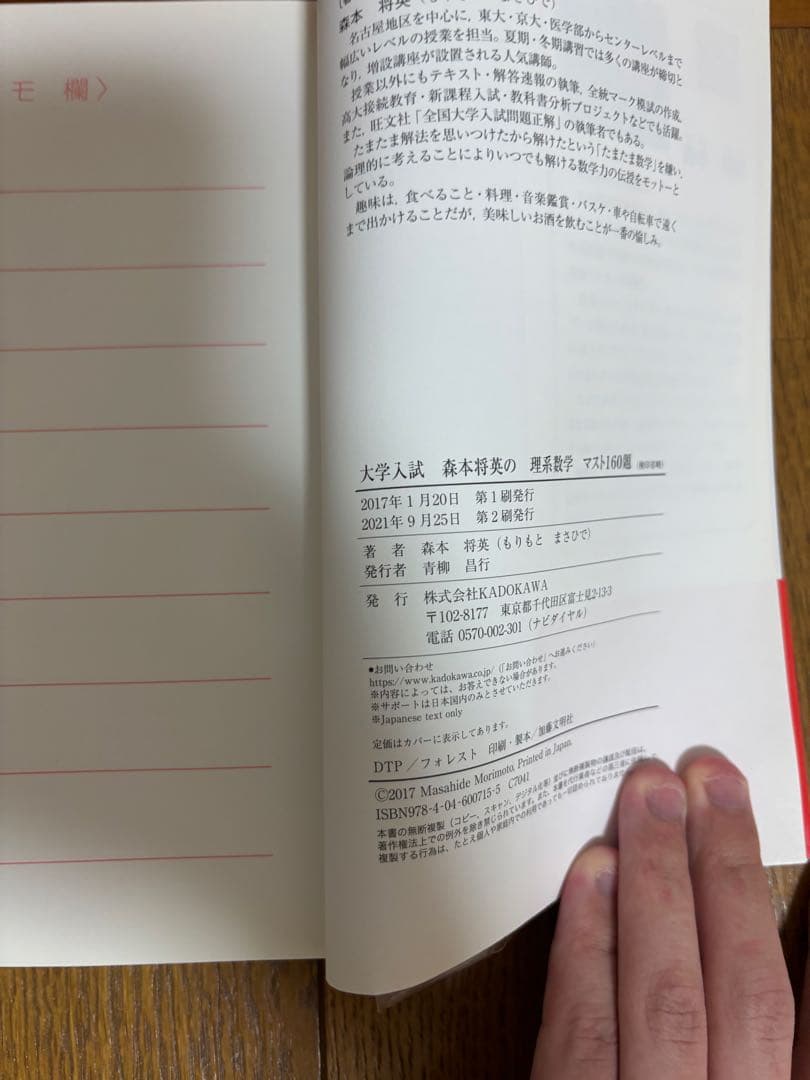 モ 欄〉
森本 将英
名古屋地区を中心に，東大・京大・医学部からセンターレベルまで
幅広いレベルの授業を担当。夏期・冬期講習では多くの講座が締切と
なり，増設講座が設置される人気講師。
授業以外にもテキスト・解答速報の執筆，全統マーク模試の作成，
高大接続教育・新課程入試・教科書分析プロジェクトなどでも活躍。
また，旺文社「全国大学入試問題正解」の執筆者でもある。
たまたま解法を思いつけたから解けたという「たまたま数学」を嫌い，
論理的に考えることによりいつでも解ける数学力の伝授をモットーと
している。
趣味は，食べること・料理・音楽鑑賞・バスケ・車や自転車で遠く
まで出かけることだが，美味しいお酒を飲むことが一番の愉しみ。
大学入試 森本将英の 理系数学 マスト160題 （検印省略）
2017年1月20日 第1刷発行
2021年9月25日 第2刷発行
著 者 森本 将英（もりもと まさひで）
発行者 青柳 昌行
発 行 株式会社KADOKAWA
〒102-8177 東京都千代田区富士見2-13-3
電話 0570-002-301（ナビダイヤル）
●お問い合わせ
https://www.kadokawa.co.jp/（「お問い合わせ」へお進みください）
※内容によっては，お答えできない場合があります。
※サポートは日本国内のみとさせていただきます。
※Japanese text only
定価はカバーに表示してあります。
DTP／フォレスト 印刷・製本／加藤文明社
©2017 Masahide Morimoto, Printed in Japan.
ISBN978-4-04-600715-5 C7041
本書の無断複製（コピー，スキャン，デジタル化等）並びに無断複製物の譲渡及び配信は，
著作権法上での例外を除き禁じられています。また，本書を代行業者などの第三者に依頼して
複製する行為は，たとえ個人や家庭内での利用であっても一切認められておりません。